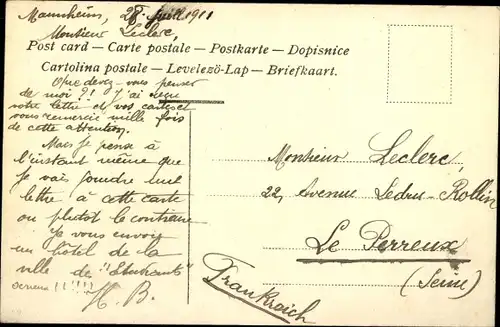 Mannheim, 28 Juill 1911
Monsieur Leclerc,
Post card – Carte postale – Postkarte – Dopisnice
Cartolina postale – Levelezö-Lap – Briefkaart.
Que devez-vous penser
de moi ?! J'ai reçu
votre lettre et vos cartes et
vous remercie mille fois
de cette attention.
Mais je pense à
l'instant même que
je vais joindre une
lettre à cette carte
ou plutôt le contraire
Je vous envoie
un hôtel de la
ville de
(!!!!) H. B.
Monsieur Leclerc,
22, Avenue Ledru-Rollin
Le Perreux
(Seine)
Frankreich